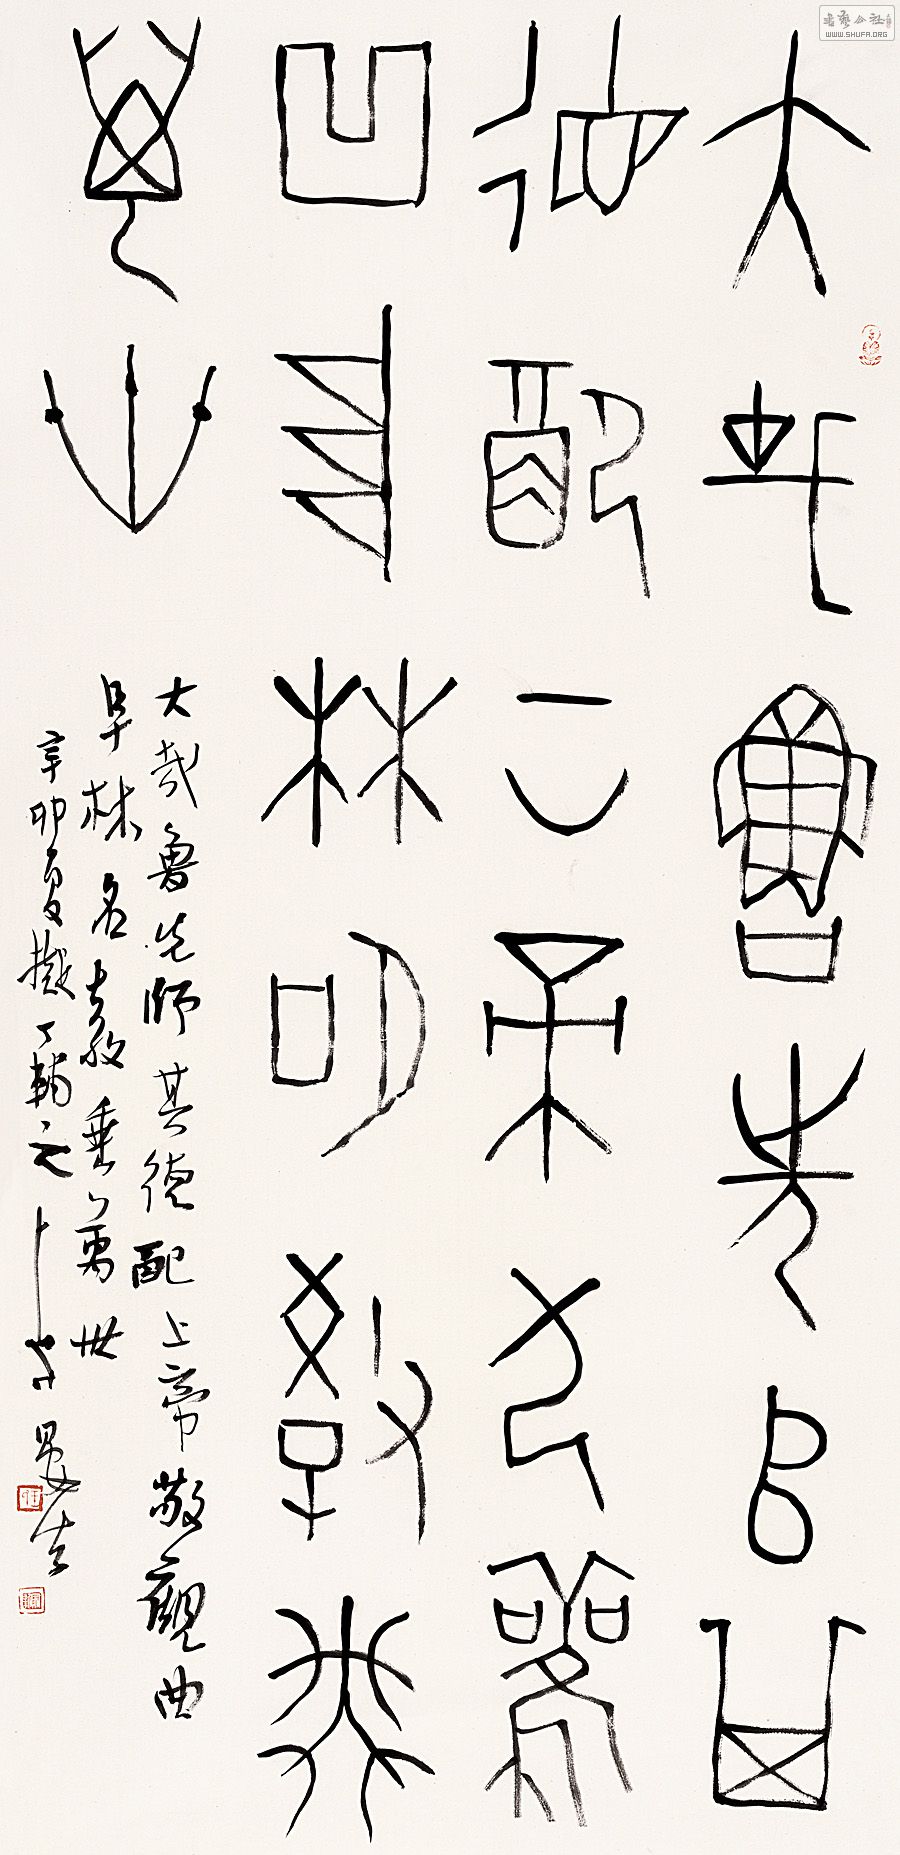 大哉魯先師其
德配上帝敬觀
曲阜林名教垂
萬世
大哉魯先師其德配上帝敬觀曲
阜林名教垂萬世
辛卯夏擬丁輔之
书艺公社
WWW.SHUFA.ORG